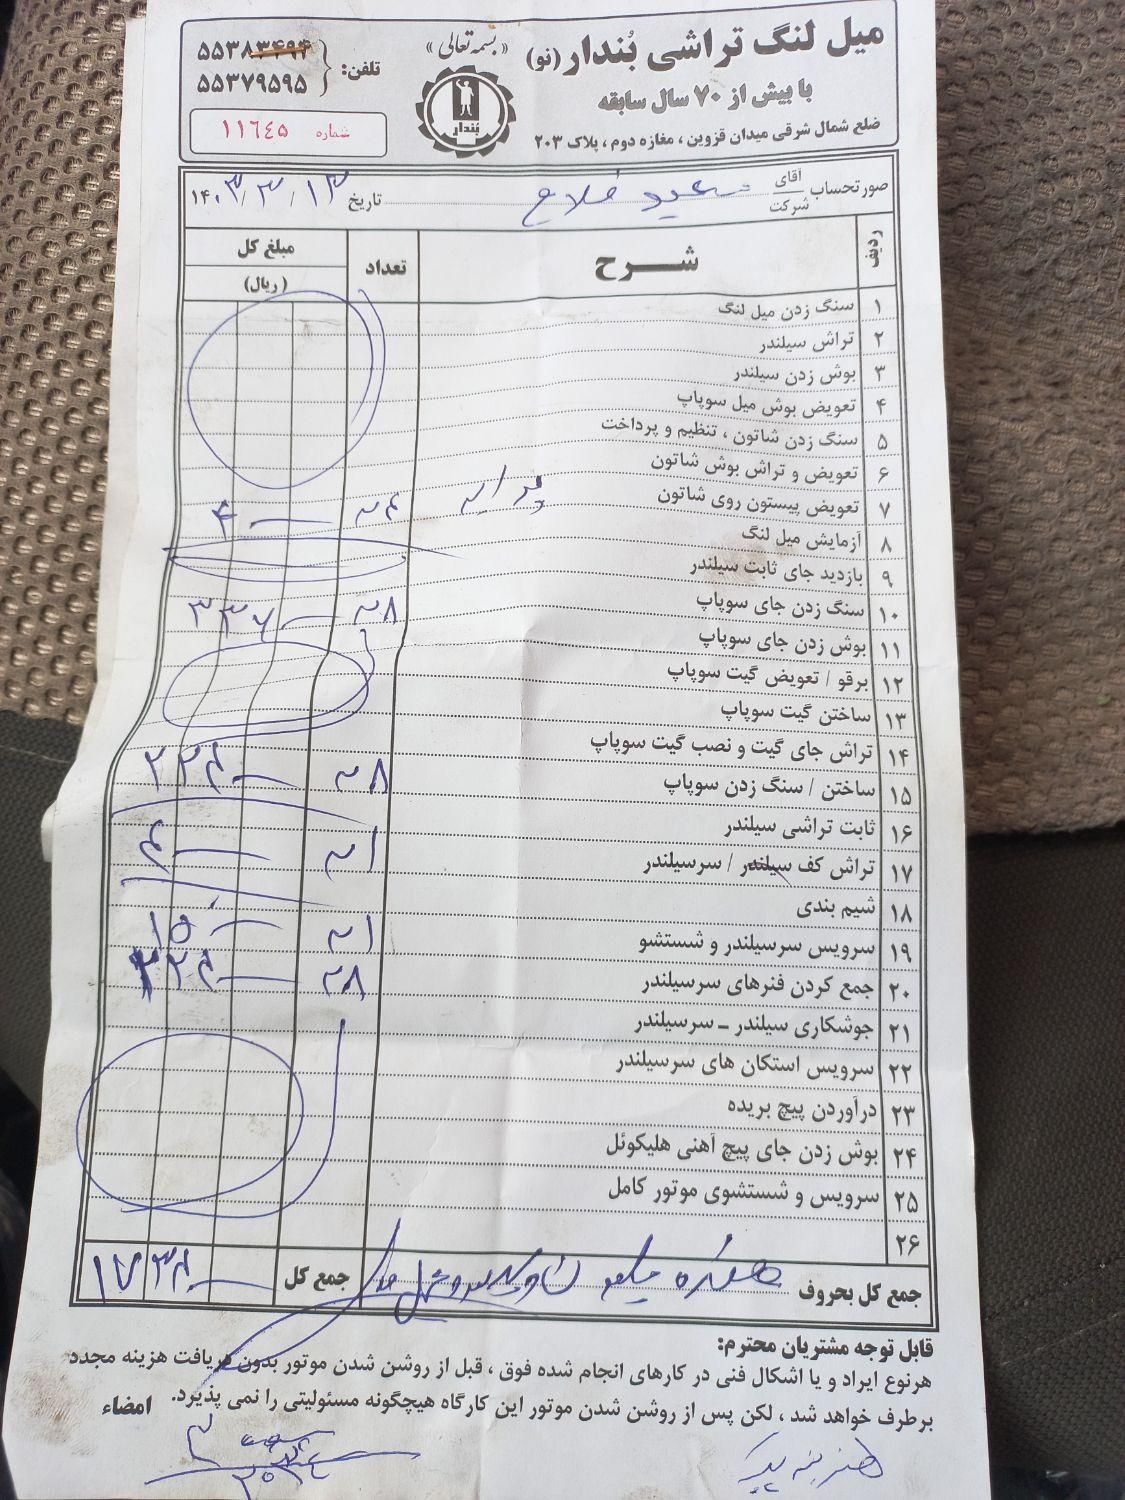 میل لنگ تراشی بُندار (نو)
با بیش از ۷۰ سال سابقه
ضلع شمال شرقی میدان قزوین ، مغازه دوم ، پلاک ۲۰۳
« بسمه تعالی »
بُندار
تلفن:
۵۵۳۸۳۴۹۴
۵۵۳۷۹۵۹۵
شماره ۱۱٦٤۵
صورتحساب آقای / شرکت سعید فلاح تاریخ ۱۴۰۳/۳/۱۳
ردیف شـــرح تعداد مبلغ کل (ریال)
۱ سنگ زدن میل لنگ
۲ تراش سیلندر
۳ بوش زدن سیلندر
۴ تعویض بوش میل سوپاپ
۵ سنگ زدن شاتون ، تنظیم و پرداخت
۶ تعویض و تراش بوش شاتون
۷ تعویض پیستون روی شاتون
۸ آزمایش میل لنگ
۹ بازدید جای ثابت سیلندر
۱۰ سنگ زدن جای سوپاپ
۱۱ بوش زدن جای سوپاپ
۱۲ برقو / تعویض گیت سوپاپ
۱۳ ساختن گیت سوپاپ
۱۴ تراش جای گیت و نصب گیت سوپاپ
۱۵ ساختن / سنگ زدن سوپاپ
۱۶ ثابت تراشی سیلندر
۱۷ تراش کف سیلندر / سرسیلندر
۱۸ شیم بندی
۱۹ سرویس سرسیلندر و شستشو
۲۰ جمع کردن فنرهای سرسیلندر
۲۱ جوشکاری سیلندر ـ سرسیلندر
۲۲ سرویس استکان های سرسیلندر
۲۳ درآوردن پیچ بریده
۲۴ بوش زدن جای پیچ آهنی هلیکوئل
۲۵ سرویس و شستشوی موتور کامل
۲۶
جمع کل بحروف جمع کل
قابل توجه مشتریان محترم:
هرنوع ایراد و یا اشکال فنی در کارهای انجام شده فوق ، قبل از روشن شدن موتور بدون دریافت هزینه مجدد
برطرف خواهد شد ، لکن پس از روشن شدن موتور این کارگاه هیچگونه مسئولیتی را نمی پذیرد. امضاء